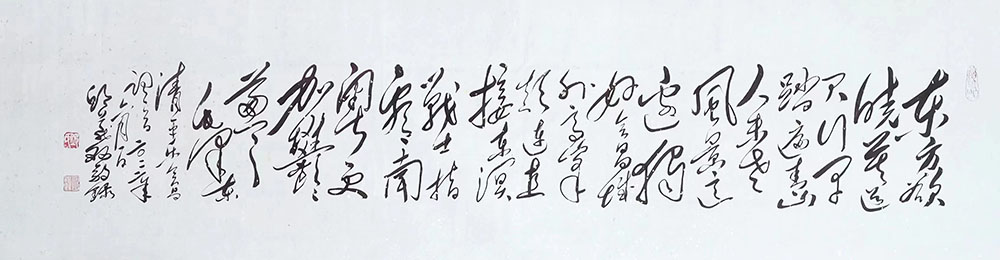 东方欲
晓莫道
君行早
踏遍青山
人未老
風景这
边獨
好会昌城
外高峰
颠连直
接东溟
戰士指
看南
粤更
加鬱鬱
葱葱
毛泽东
清平乐会昌
六月